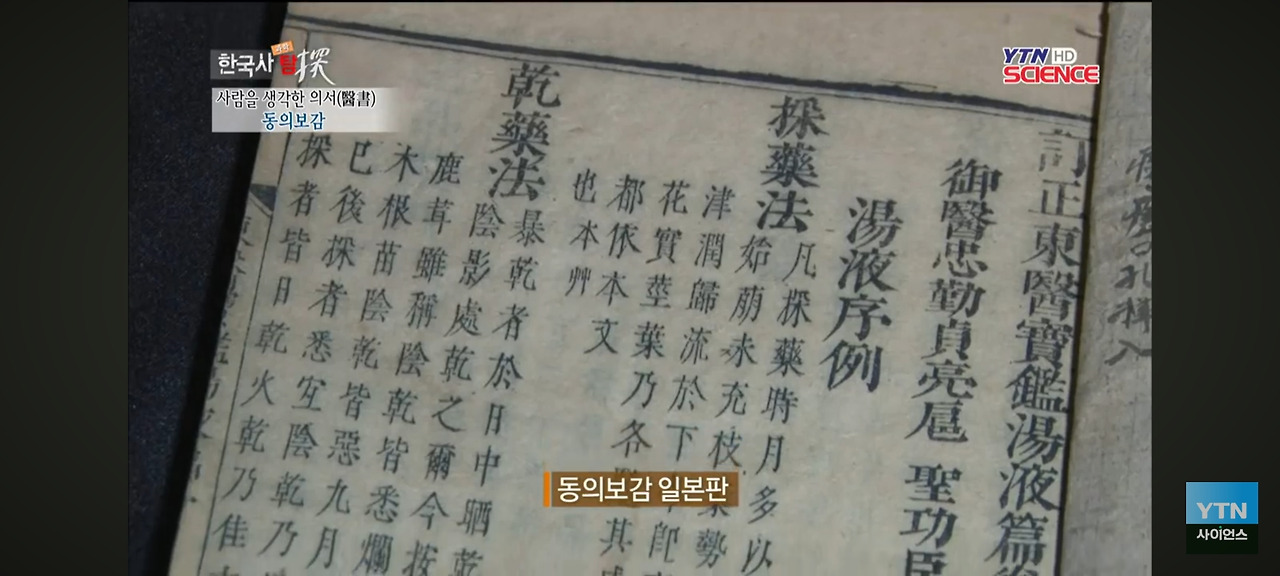 한국사 과학 탐探
사람을 생각한 의서(醫書)
동의보감
YTN HD
SCIENCE
訂正東醫寶鑑湯液篇
御醫忠勤貞亮扈 聖功臣
湯液序例
採藥法 凡採藥時月多以
始萌未充枝葉勢
津潤歸流於下
花實莖葉乃各其
都依本文
也本艸
乾藥法 暴乾者於日中晒乾
陰影處乾之爾今按
鹿茸雖稱陰乾皆悉爛
木根苗陰乾皆惡九月
已後採者悉宜陰乾乃
採者皆日乾火乾乃佳
동의보감 일본판
YTN
사이언스